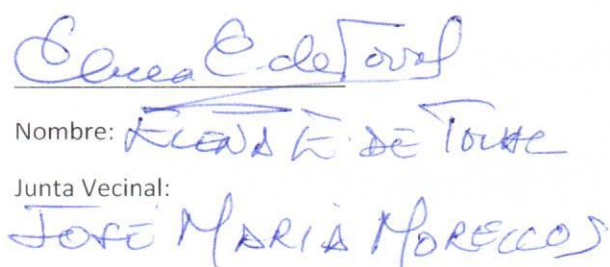 Elena E de Tovar
Nombre: ELENA E. DE TOVAR
Junta Vecinal:
JOSÉ MARIA MORELLOS